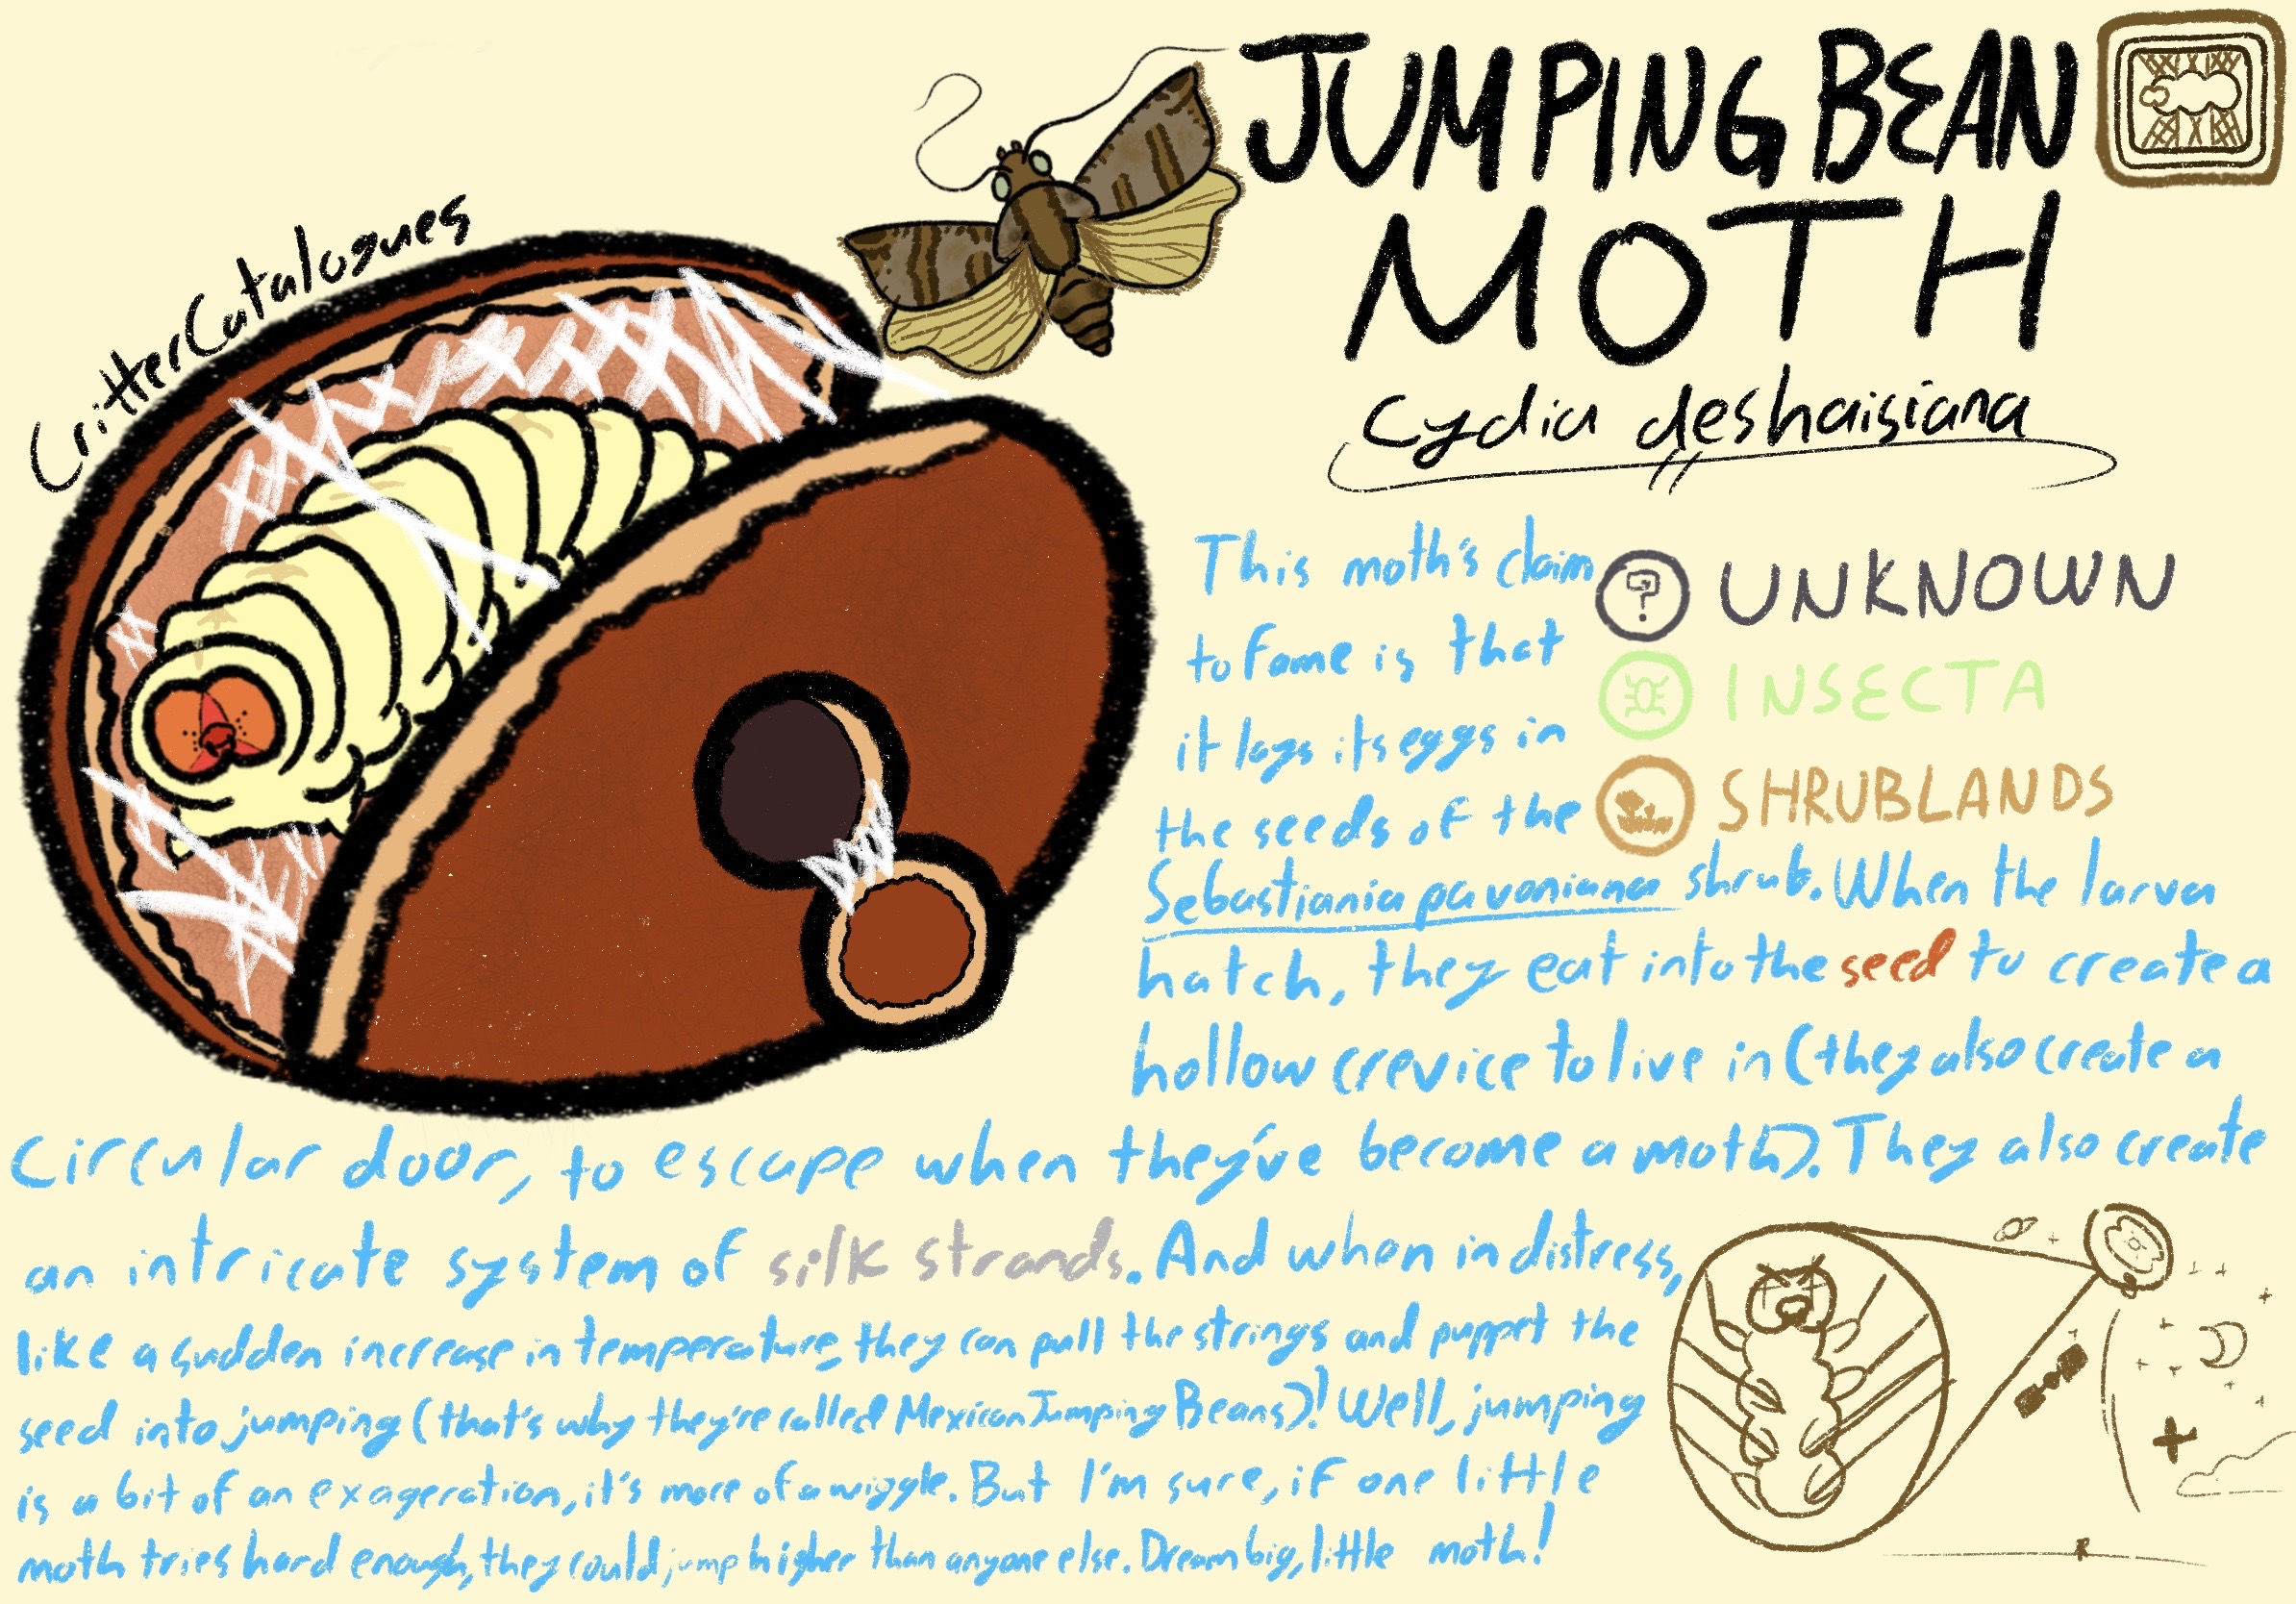 JUMPING BEAN
MOTH
Cydia deshaisiana
CritterCatalogues
UNKNOWN
INSECTA
SHRUBLANDS
This moth's claim
to fame is that
it lays its eggs in
the seeds of the
Sebastiania pavoniana shrub. When the larva
hatch, they eat into the seed to create a
hollow crevice to live in (they also create a
circular door, to escape when they've become a moth). They also create
an intricate system of silk strands. And when in distress,
like a sudden increase in temperature, they can pull the strings and puppet the
seed into jumping (that's why they're called Mexican Jumping Beans)! Well, jumping
is a bit of an exageration, it's more of a wiggle. But I'm sure, if one little
moth tries hard enough, they could jump higher than anyone else. Dream big, little moth!